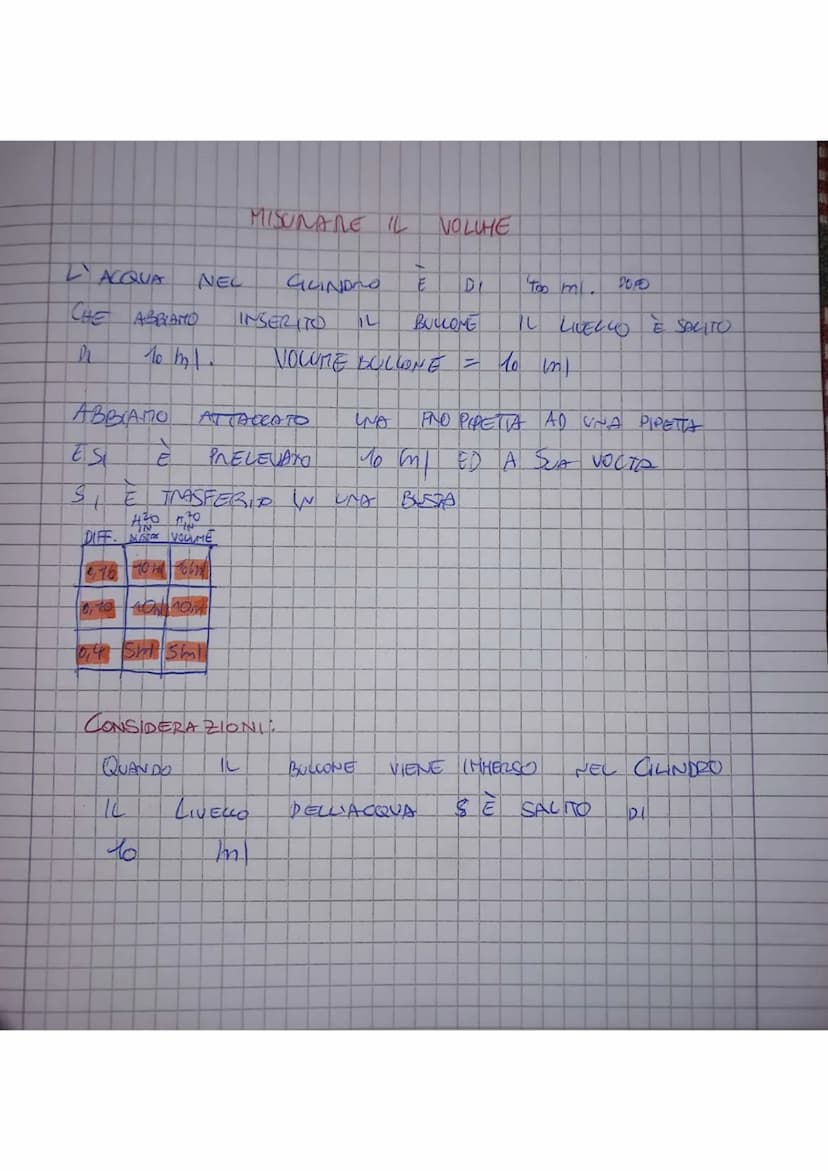 MISURARE IL VOLUME
L'ACQUA NEL CILINDRO È DI 400 ml. DOPO
CHE ABBIAMO INSERITO IL BULLONE IL LIVELLO È SALITO
DI 10 ml. VOLUME BULLONE = 10 ml
ABBIAMO ATTACCATO UNA PROPIPETTA AD UNA PIPETTA
E SI È PRELEVATO 10 ml ED A SUA VOLTA
SI È TRASFERITO IN UNA
H²O H²O
IN IN
DIFF. VOLUME
0,16 10 ml 10ml
0,20 10ml 10ml
0,4 5ml 5ml
CONSIDERAZIONI:
QUANDO IL BULLONE VIENE IMMERSO NEL CILINDRO
IL LIVELLO DELL'ACQUA È SALITO DI
10 ml